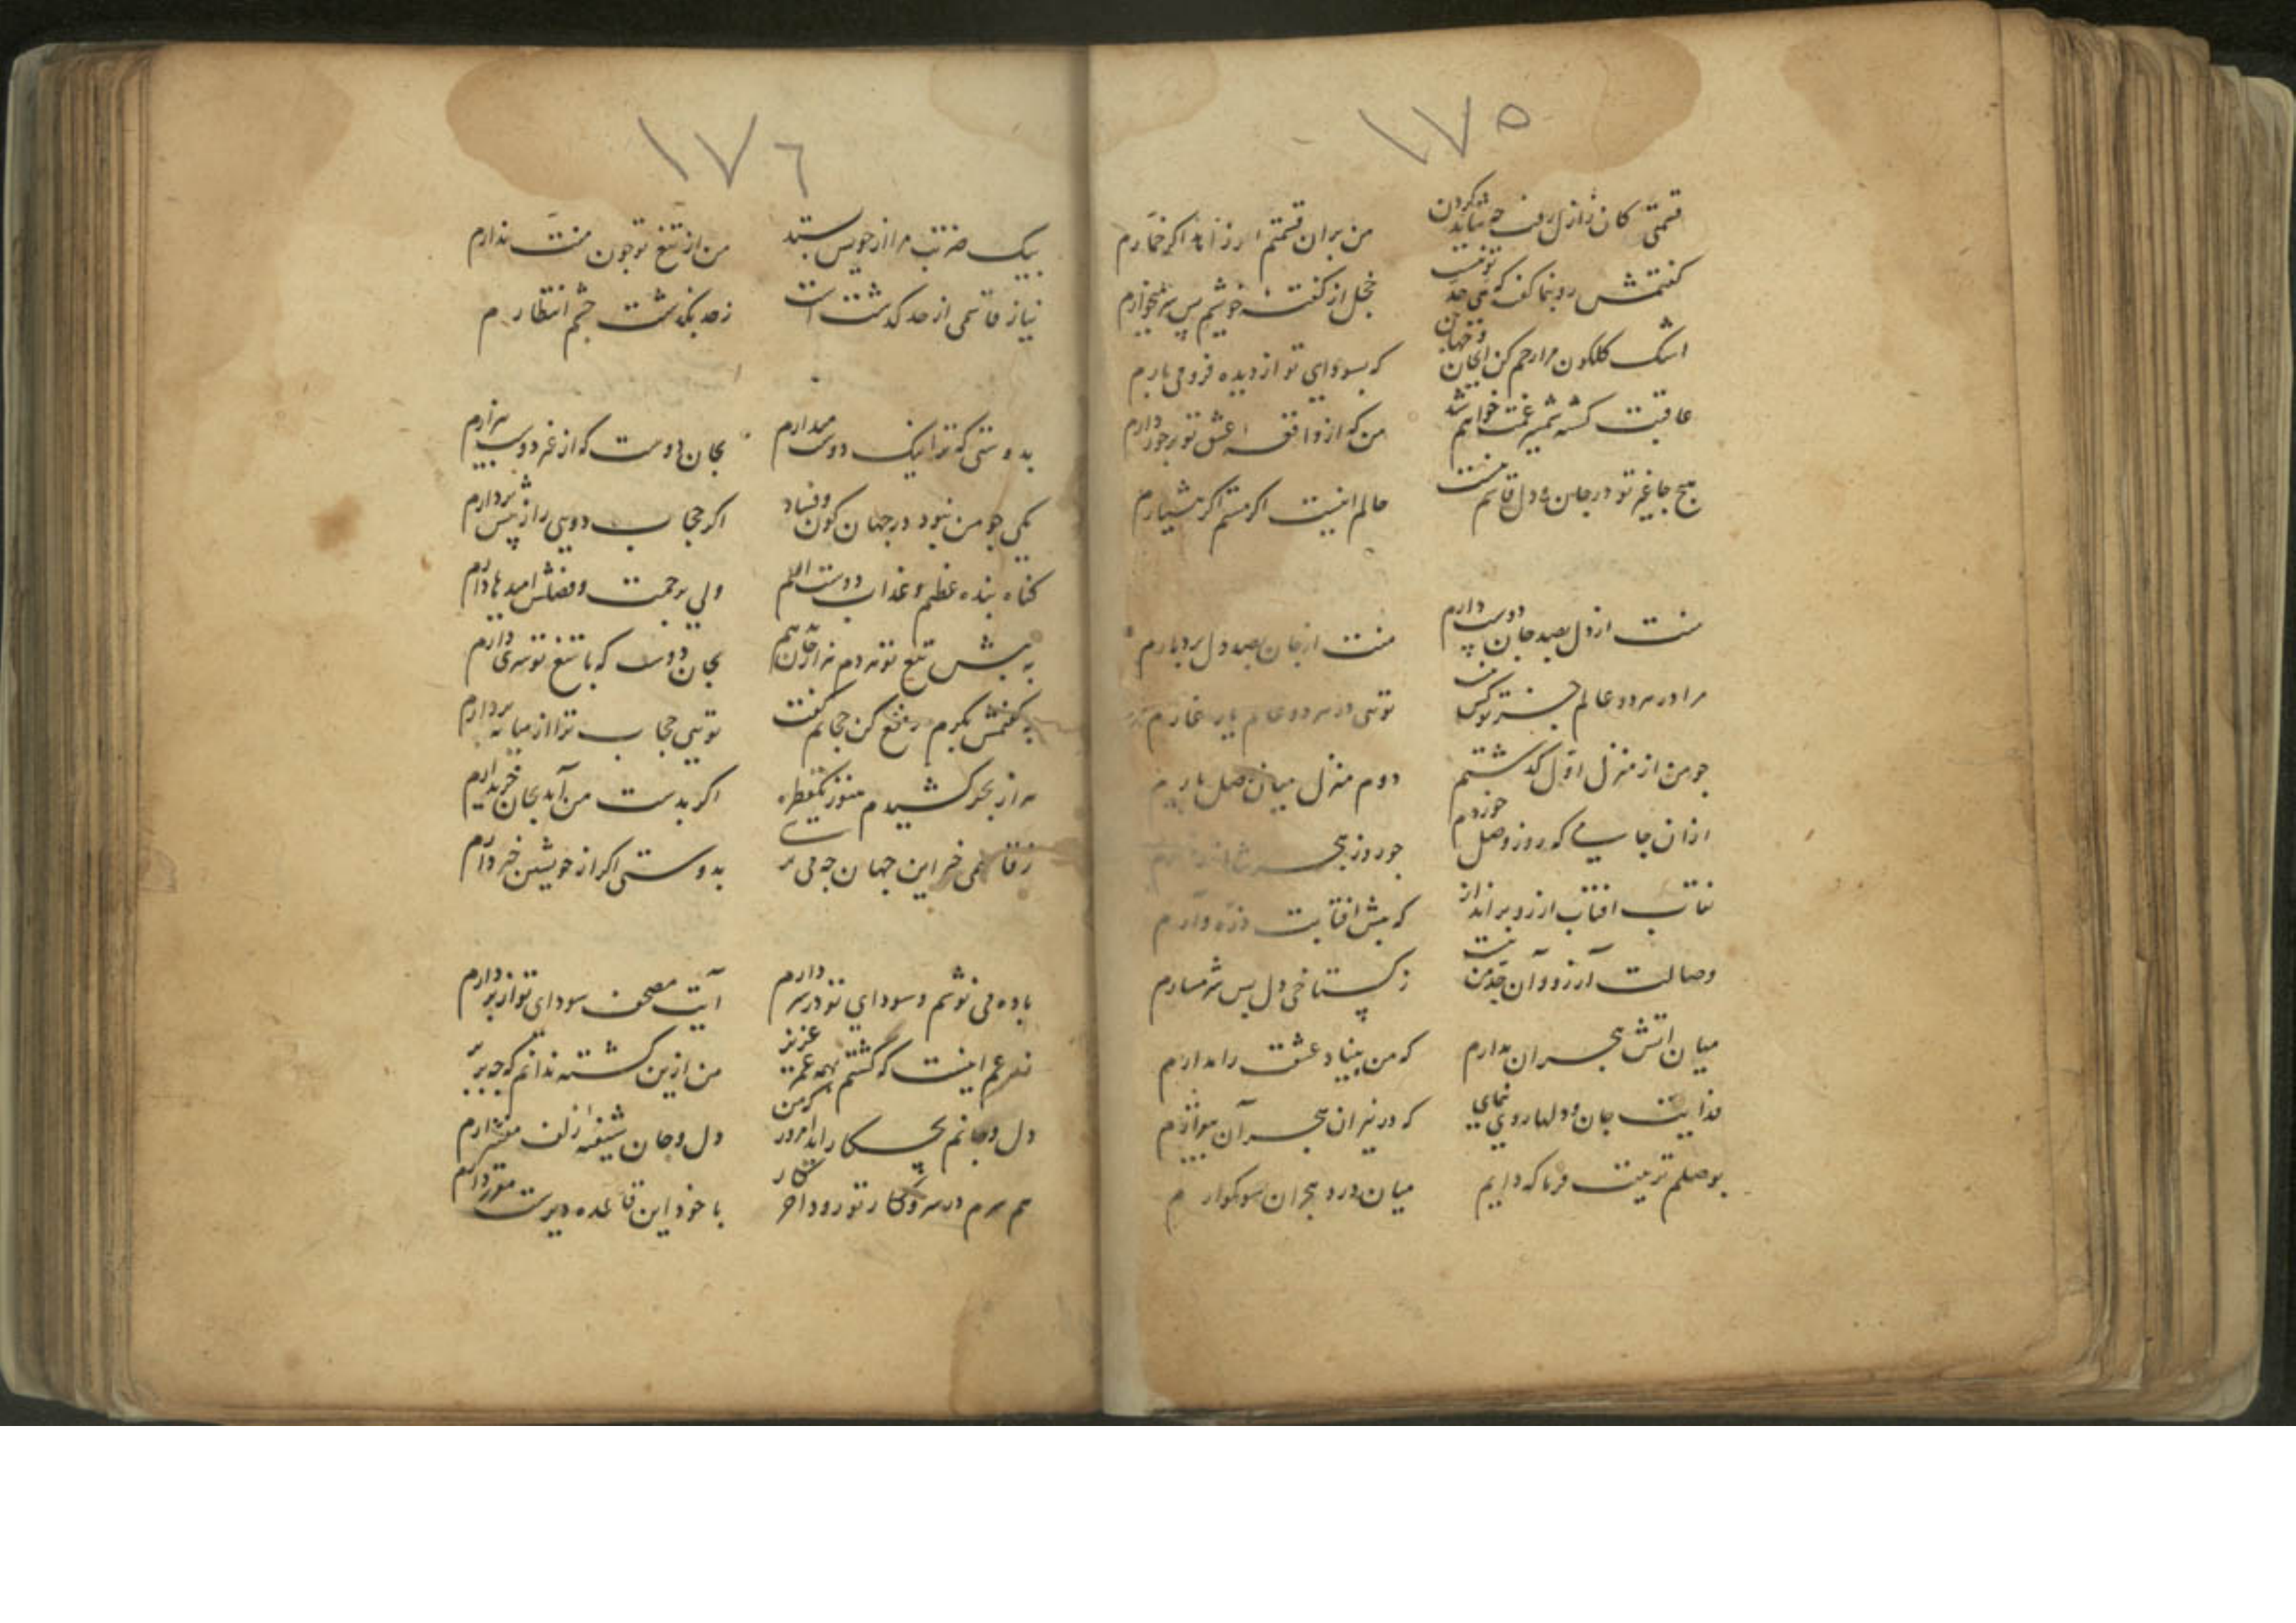 ١٧٥
قسمتی کان ز ازل رفت چه شاید کردن من بران قسمتم ار زاهد اگر خمارم
گفتمش رو بنما گفت که بی حد خجل از گفته خویشم پس
اشک گلگون مرا رحم کن ای جان و جهان که بسودای تو از دیده فرو می بارم
عاقبت کشته شمشیر غمت خواهم شد من که از واقعه عشق تو برخوردارم
هیچ جا غیر تو در جان و دل قاسم نیست حالم اینست اگر مستم اگر هشیارم
منت از دل بصد جان دوست دارم منت از جان بصد دل بردبارم
مرا در هر دو عالم جز تو کس نیست تویی در هر دو عالم یار غارم
جو من از منزل اول گذشتم دوم منزل میان وصل یارم
ازان جامی که روز وصل خوردم جو روز هجر شد
نقاب افتاب از رو برانداز که پیش افتابت ذره وارم
وصالت آرزو و آن حد من نیست ز گستاخی دل بس شرمسارم
میان اتش هجران مدارم که من بنیاد عشقت را مدارم
فدایت جان و دلها روی بنمای که در نیران هجر آن
بوصلم تربیت فرما که دایم میان درد هجران سوکوارم
١٧٦
بیک ضربت مرا از خویش بستد من از تیغ تو جون منت ندارم
نیاز قاسمی از حد گذشت است ز حد بگذشت چشم انتظارم
بدوستی که ترا نیک دوست میدارم بجان دوست که از غیر دوست بیزارم
یکی جو من نبود در جهان کون و فساد اگر حجاب دویی را ز پیش بردارم
گناه بنده عظیم و عذاب دوست الیم ولی برحمت و فضلش امیدها دارم
به پیش تیغ تو بجان دوست که با تیغ تو سری دارم
بگفتمش بکرم رفع کن حجابم گفت تویی حجاب ترا از میانه بردارم
هزار بحر کشیدم هنوز یکقطره اگر بدست من آید بجان خریدارم
ز قاسمی خبر این جهان چه می پرسی بدوستی اگر از خویشتن خبر دارم
باده می نوشم و سودای تو در سر دارم آیت مصحف سودای تو از بر دارم
نقد عمر اینست که گشتم همه عمر عزیز من ازین گشته ندانم که چه بر
دل و جانم دل و جان شیفته زلف
هم سرم در سر و کار تو رود اخر کار با خود این قاعده دیرست مقرر دارم